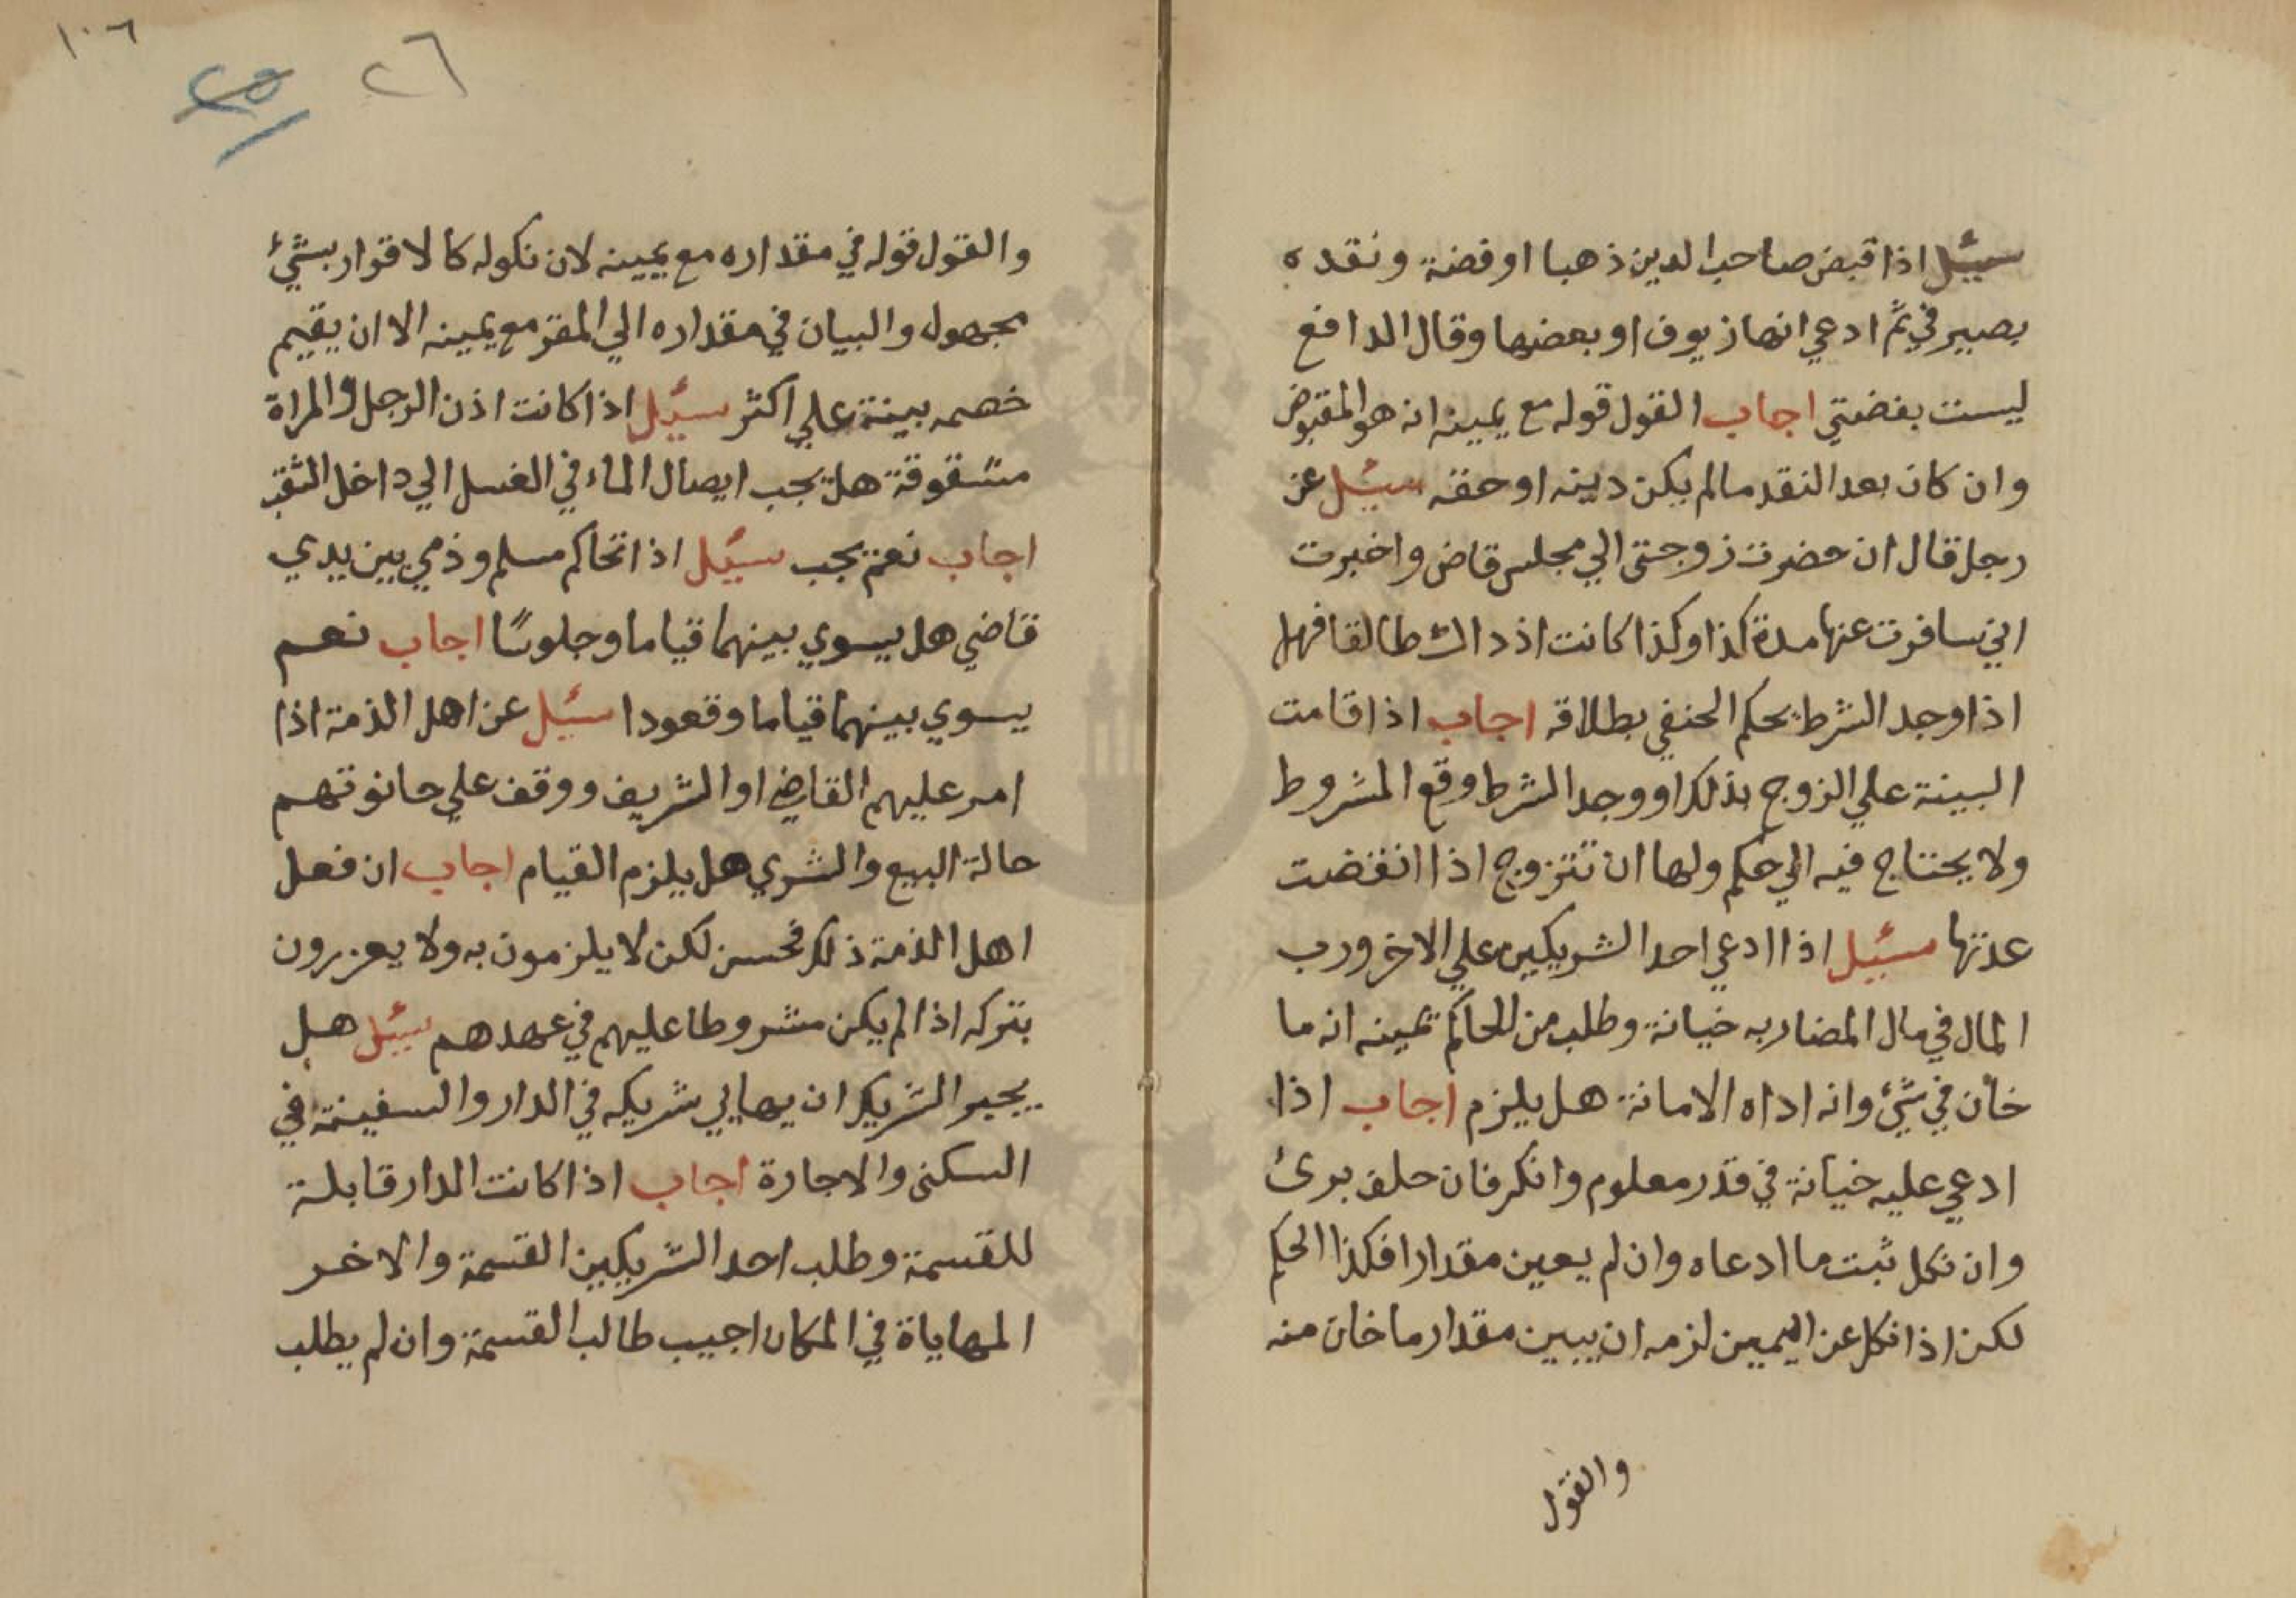 سئيل اذا قبض صاحب الدين ذهبا او فضة ونقده
بصيرفي ثم ادعي انها زيوف او بعضها وقال الدافع
ليست بفضتي اجاب القول قوله مع يمينه انه هو المقبوض
وان كان بعد النقد مالم يكن دينه او حقه سئيل عن
رجل قال ان حضرت زوجتى الي مجلس قاض واخبرت
اني سافرت عنها مدة كذا وكذا كانت اذ داك طالقا فهل
اذا وجد الشرط يحكم الحنفي بطلاقه اجاب اذا اقامت
البينة علي الزوج بذلك او وجد الشرط وقع المشروط
ولا يحتاج فيه الي حكم ولها ان تتزوج اذا انقضت
عدتها سئيل اذا ادعي احد الشريكين علي الاخر ورب
المال في مال المضاربه خيانة وطلب من الحاكم يمينه انه ما
خان في شئ وانه اداه الامانة هل يلزم اجاب اذا
ادعي عليه خيانة في قدر معلوم وانكر فان حلف برئ
وان نكل ثبت ما ادعاه وان لم يعين مقدارا فكذا الحكم
لكن اذا نكل عن اليمين لزمه ان يبين مقدار ما خان منه
والقول
١٠٦
٢٦
٢٥
والقول قوله في مقداره مع يمينه لان نكوله كالاقرار بشئ
مجهول والبيان في مقداره الي المقر مع يمينه الا ان يقيم
خصمه بينة علي اكثر سئيل اذا كانت اذن الرجل والمراة
مشقوقة هل يجب ايصال الماء في الغسل الي داخل الثقب
اجاب نعم يجب سئيل اذا تحاكم مسلم وذمي بين يدي
قاضي هل يسوي بينهما قياما وجلوسًا اجاب نعم
يسوي بينهما قياما وقعودا سئيل عن اهل الذمة اذا
امر عليهم القاضي او الشريف ووقف علي حانوتهم
حالة البيع والشري هل يلزم القيام اجاب ان فعل
اهل الذمة ذلك فحسن لكن لا يلزمون به ولا يعزرون
بتركه اذا لم يكن مشروطا عليهم في عهدهم سئيل هل
يجبر الشريك ان يهايي شريكه في الدار والسفينة في
السكنى والاجارة اجاب اذا كانت الدار قابلة
للقسمة وطلب احد الشريكين القسمة والاخر
المهاياة في المكان اجيب طالب القسمة وان لم يطلب